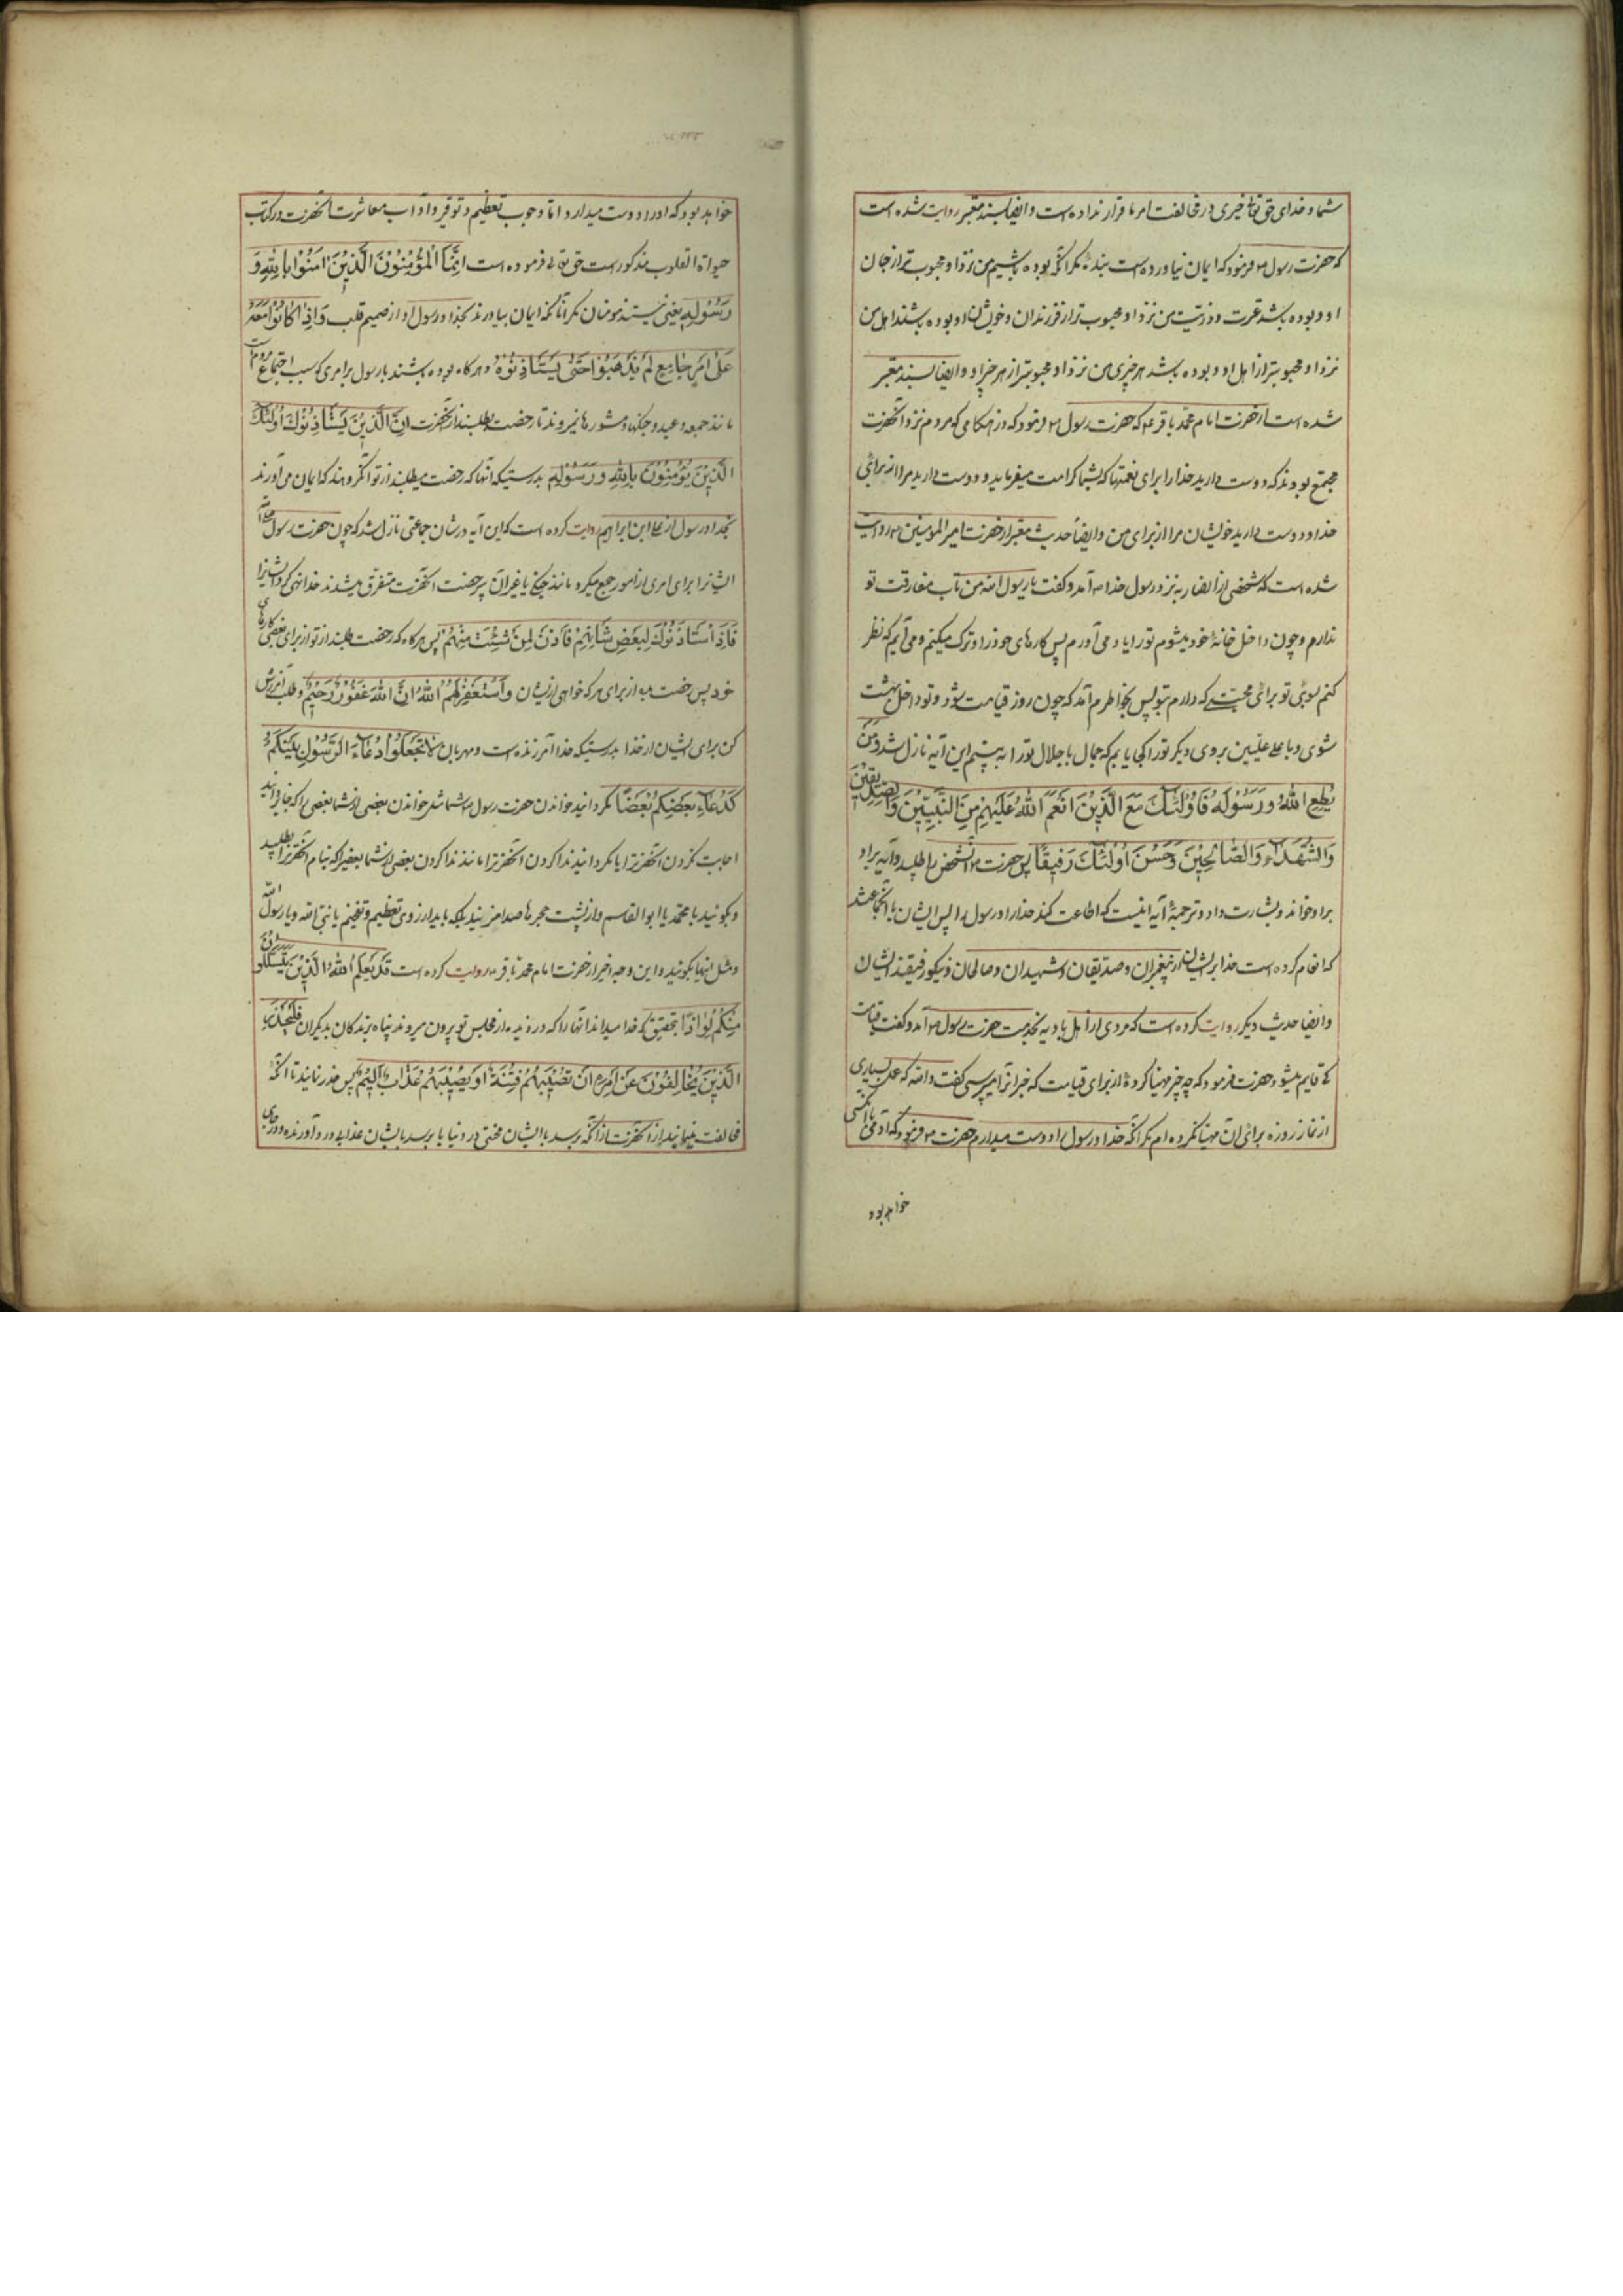 شما و خدای حق تعالی خیری در مخالفت امر ما قرار نداده است و ایضا بسند معتبر روایت شده است
که حضرت رسول ص فرمود که ایمان نیاورده است بنده مگر آنکه بوده باشیم من نزد او محبوب تر از جان
او و بوده باشد عترت و ذریت من نزد او محبوب تر از فرزندان و خویشان او و بوده باشند اهل من
نزد او محبوبتر از اهل او و بوده باشد هر چیزی من نزد او محبوبتر از هر چیز او و ایضا بسند معتبر
شده است از حضرت امام محمد باقر ع که حضرت رسول ص فرمود که در هنگامی که مردم نزد آنحضرت
مجتمع بودند که دوست دارید خدا را برای نعمتها که بشما کرامت میفرماید و دوست دارید مرا از برای
خدا و دوست دارید خویشان مرا از برای من و ایضاً حدیث معتبر از حضرت امیر المومنین ع روایت
شده است که شخصی از انصار به نزد رسول خدا ص آمد و گفت یا رسول الله من تاب مفارقت تو
ندارم و چون داخل خانهٔ خود میشوم تو را یاد می آورم پس کارهای خود را ترک میکنم و می آیم که نظر
کنم بسوی تو برای محبتی که دارم بتو پس بخاطرم آمد که چون روز قیامت شود و تو داخل بهشت
شوی و باعلی علیین بروی دیگر تو را کجا یابم که جمال با جلال تو را به بینم این آیه نازل شد وَمَن
یُطِعِ اللهُ وَرَسُولَهُ فَاُولئِکَ مَعَ الَّذِینَ اَنعَمَ اللهُ عَلَیهِم مِنَ النَّبِیّینَ وَالصِدّیقینَ
وَالشُّهَدَآءِ وَالصَّالِحِینَ وَحَسُنَ اُولئِکَ رَفیقًا پس حضرت ص آنشخص را طلبید و آیه بر او
بر او خواند و بشارت داد و ترجمهٔ آیه اینست که اطاعت کنند خدا را و رسول را پس ایشان با آنجماعتند
که انعام کرده است خدا بر ایشان از پیغمبران و صدیقان و شهیدان و صالحان و نیکو رفیقند ایشان
و ایضا حدیث دیگر روایت کرده است که مردی از اهل بادیه بخدمت حضرت رسول ص آمد و گفت قیامت
کی قایم میشود حضرت فرمود که چه چیز مهیا کردهٔ از برای قیامت که خبر آنرا میپرسی گفت والله که عمل بسیاری
از نماز و روزه برای آن مهیا نکرده ام مگر آنکه خدا و رسول را دوست میدارم حضرت ص فرمود که آدمی با کسی
خواهد بود
خواهد بود که او را دوست میدارد و اما وجوب تعظیم و توقیر و آداب معاشرت آنحضرت در کتاب
حیوة القلوب مذکور است حق تعالی فرموده است اِنَّمَا المُؤمِنُونَ الَّذِینَ امَنُوا بِاللهِ وَ
رَسُولِهِ یعنی نیستند مومنان مگر آنان که ایمان بیاورند بخدا و رسول او از صمیم قلب وَاِذا کانُوا مَعَهُ
عَلی اَمرٍ جامِعٍ لَم یَذهَبُوا حَتّی یَستَاذِنُوهُ و هر گاه بوده باشند با رسول بر امری که سبب اجتماع مردمست
مانند جمعه و عید و جنگها و مشورها نمیروند تا رخصت بطلبند از آنحضرت اِنَّ الَّذِینَ یَستَاذِنُونَکَ اُولئِکَ
الَّذِینَ یُؤمِنُونَ بِاللهِ وَرَسُولِهِ بدرستیکه آنها که رخصت میطلبند از تو آنگروهند که ایمان می آورند
بخدا و رسول او علی ابن ابراهیم روایت کرده است که این آیه در شان جماعتی نازل شد که چون حضرت رسول ص
ایشانرا برای امری از امور جمع میکرد مانند جنگ یا غیر آن بی رخصت آنحضرت متفرق میشدند خدا نهی کرد ایشانرا
فَاِذَا استَاذَنُوکَ لِبَعضِ شَانِهِم فَأذَن لِمَن شِئتَ مِنهُم پس هر گاه که رخصت طلبند از تو از برای بعضی کارهای
خود پس رخصت بده از برای هر که خواهی از ایشان وَاستَغفِر لَهُمُ اللهَ اِنَّ اللهَ غَفُورٌ رَحِیمٌ و طلب آمرزش
کن برای ایشان از خدا بدرستیکه خدا آمرزنده است و مهربان لا تَجعَلُوا دُعاءَ الرَّسُولِ بَینَکُم
کَدُعاءِ بَعضِکُم بَعضًا مگردانید خواندن حضرت رسول ص شما مثل خواندن بعضی از شما بعضی را که جایز دانید
اجابت نکردن آنحضرترا یا مگردانید ندا کردن آنحضرترا مانند ندا کردن بعضی از شما بعضیرا که بنام آنحضرترا بطلبید
و بگوئید یا محمد یا ابو القاسم و از پشت حجرها صدا مزنید بلکه باید از روی تعظیم و تفخیم یا نبی الله و یا رسول الله
و مثل اینها بگوئید و این وجه اخیر از حضرت امام محمد باقر ع روایت کرده است قَد یَعلَمُ اللهُ الَّذِینَ یَتَسَلَّلُونَ
مِنکُم لِواذًا بتحقیق که خدا میداند آنها را که دزدیده از مجلس تو بیرون میروند پناه برندکان بدیگران فَلیَحذَرِ
الَّذِینَ یُخالِفُونَ عَن اَمرِهِ اَن تُصِیبَهُم فِتنَةٌ اَو یُصِیبَهُم عَذابٌ اَلِیمٌ پس حذر نمایند آنانکه
مخالفت مینمایند از آنحضرت از آنکه برسد بایشان محنتی در دنیا یا برسد بایشان عذابی درد آورنده